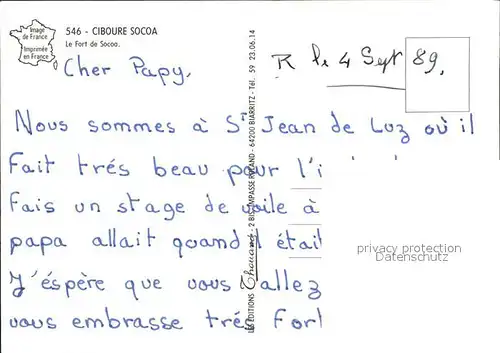 Image
de France
Imprimée
en France
546 - CIBOURE SOCOA
Le Fort de Socoa.
R le 4 Sept 89,
Cher Papy,
Nous sommes à St Jean de Luz où il
Fait trés beau pour l'i
Fais un stage de voile à
papa allait quand était
J'éspère que vous allez
vous embrasse trés Fort
LES EDITIONS Thouand - 2 BIS, IMPASSE - 64200 BIARRITZ - Tél. 59 23.06.14
privacy protection
Datenschutz